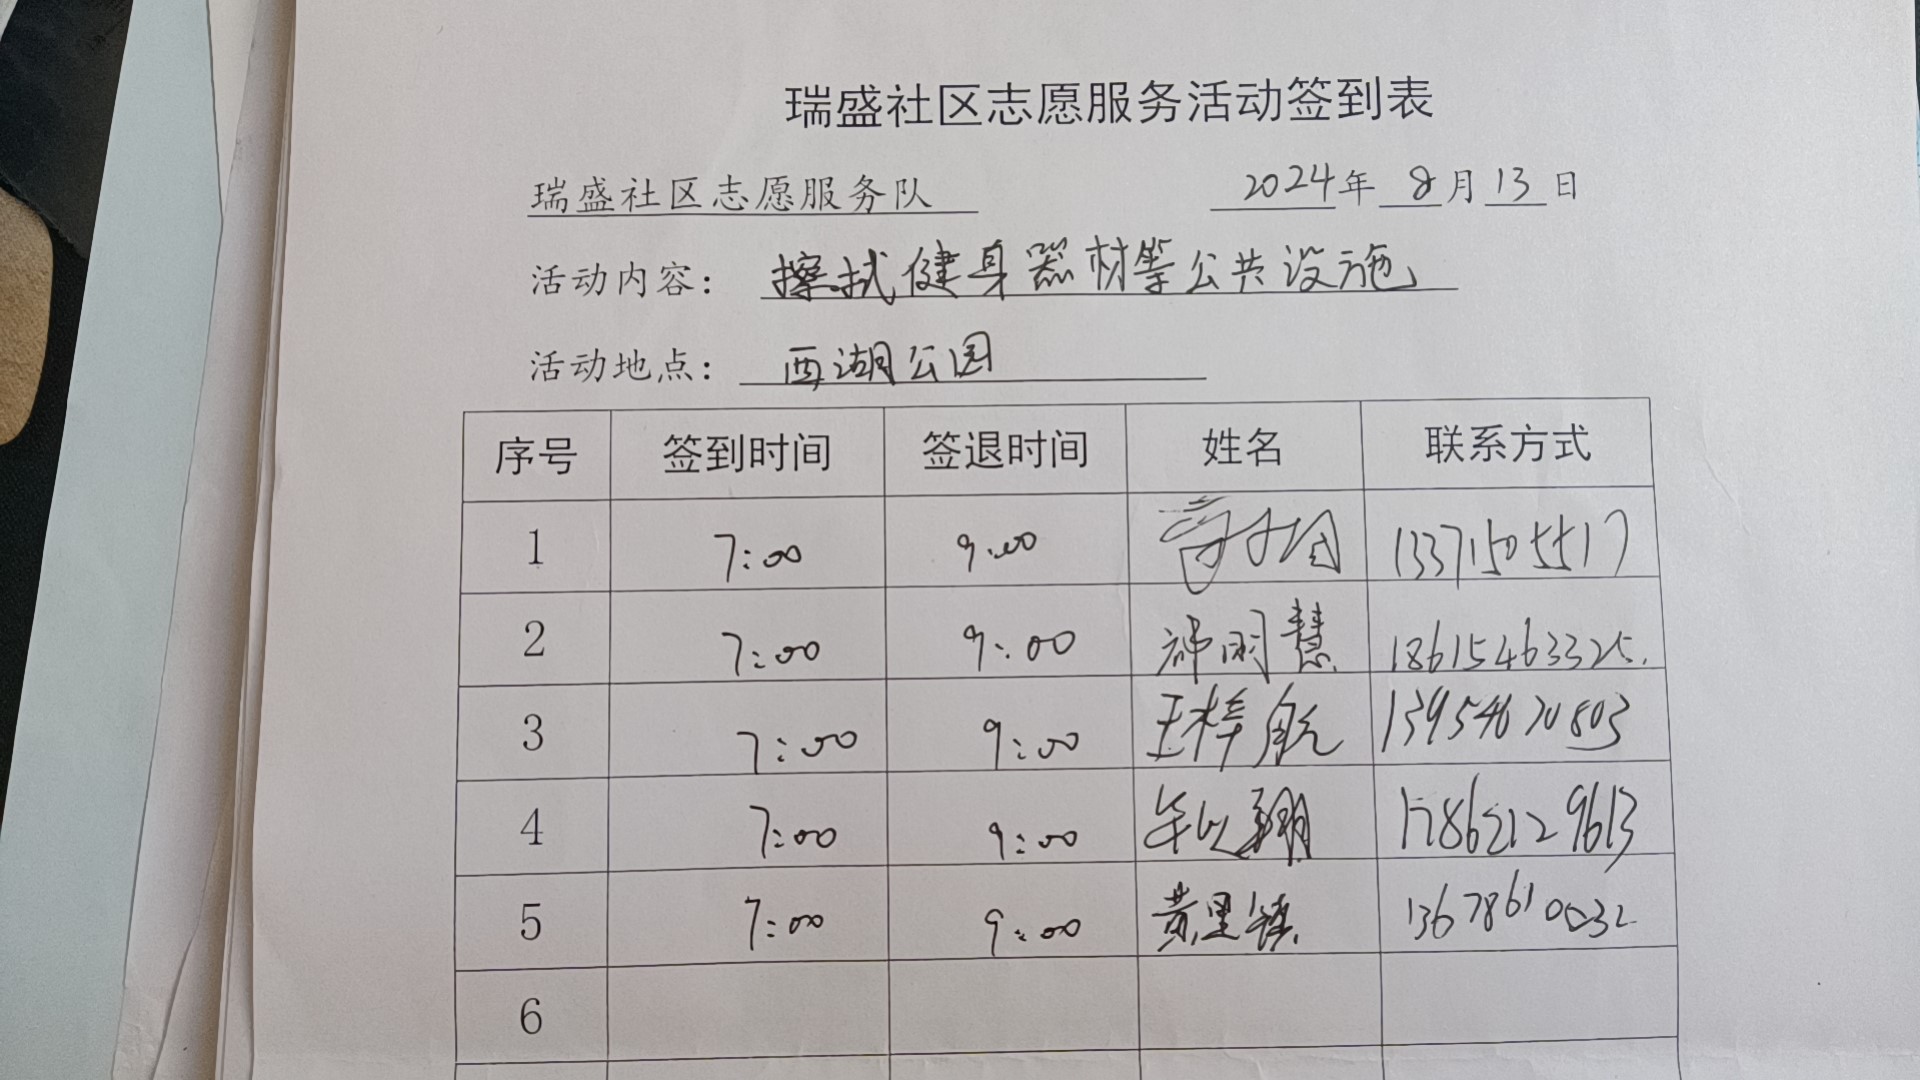 瑞盛社区志愿服务活动签到表
瑞盛社区志愿服务队 2024年 8月 13日
活动内容： 擦拭健身器材等公共设施
活动地点： 西湖公园
序号 签到时间 签退时间 姓名 联系方式
1 7:00 9:00 13371505517
2 7:00 9:00 慧 18615463325.
3 7:00 9:00 王梓航 13954670803
4 7:00 9:00 17862129613
5 7:00 9:00 黄里镇 13678610032
6